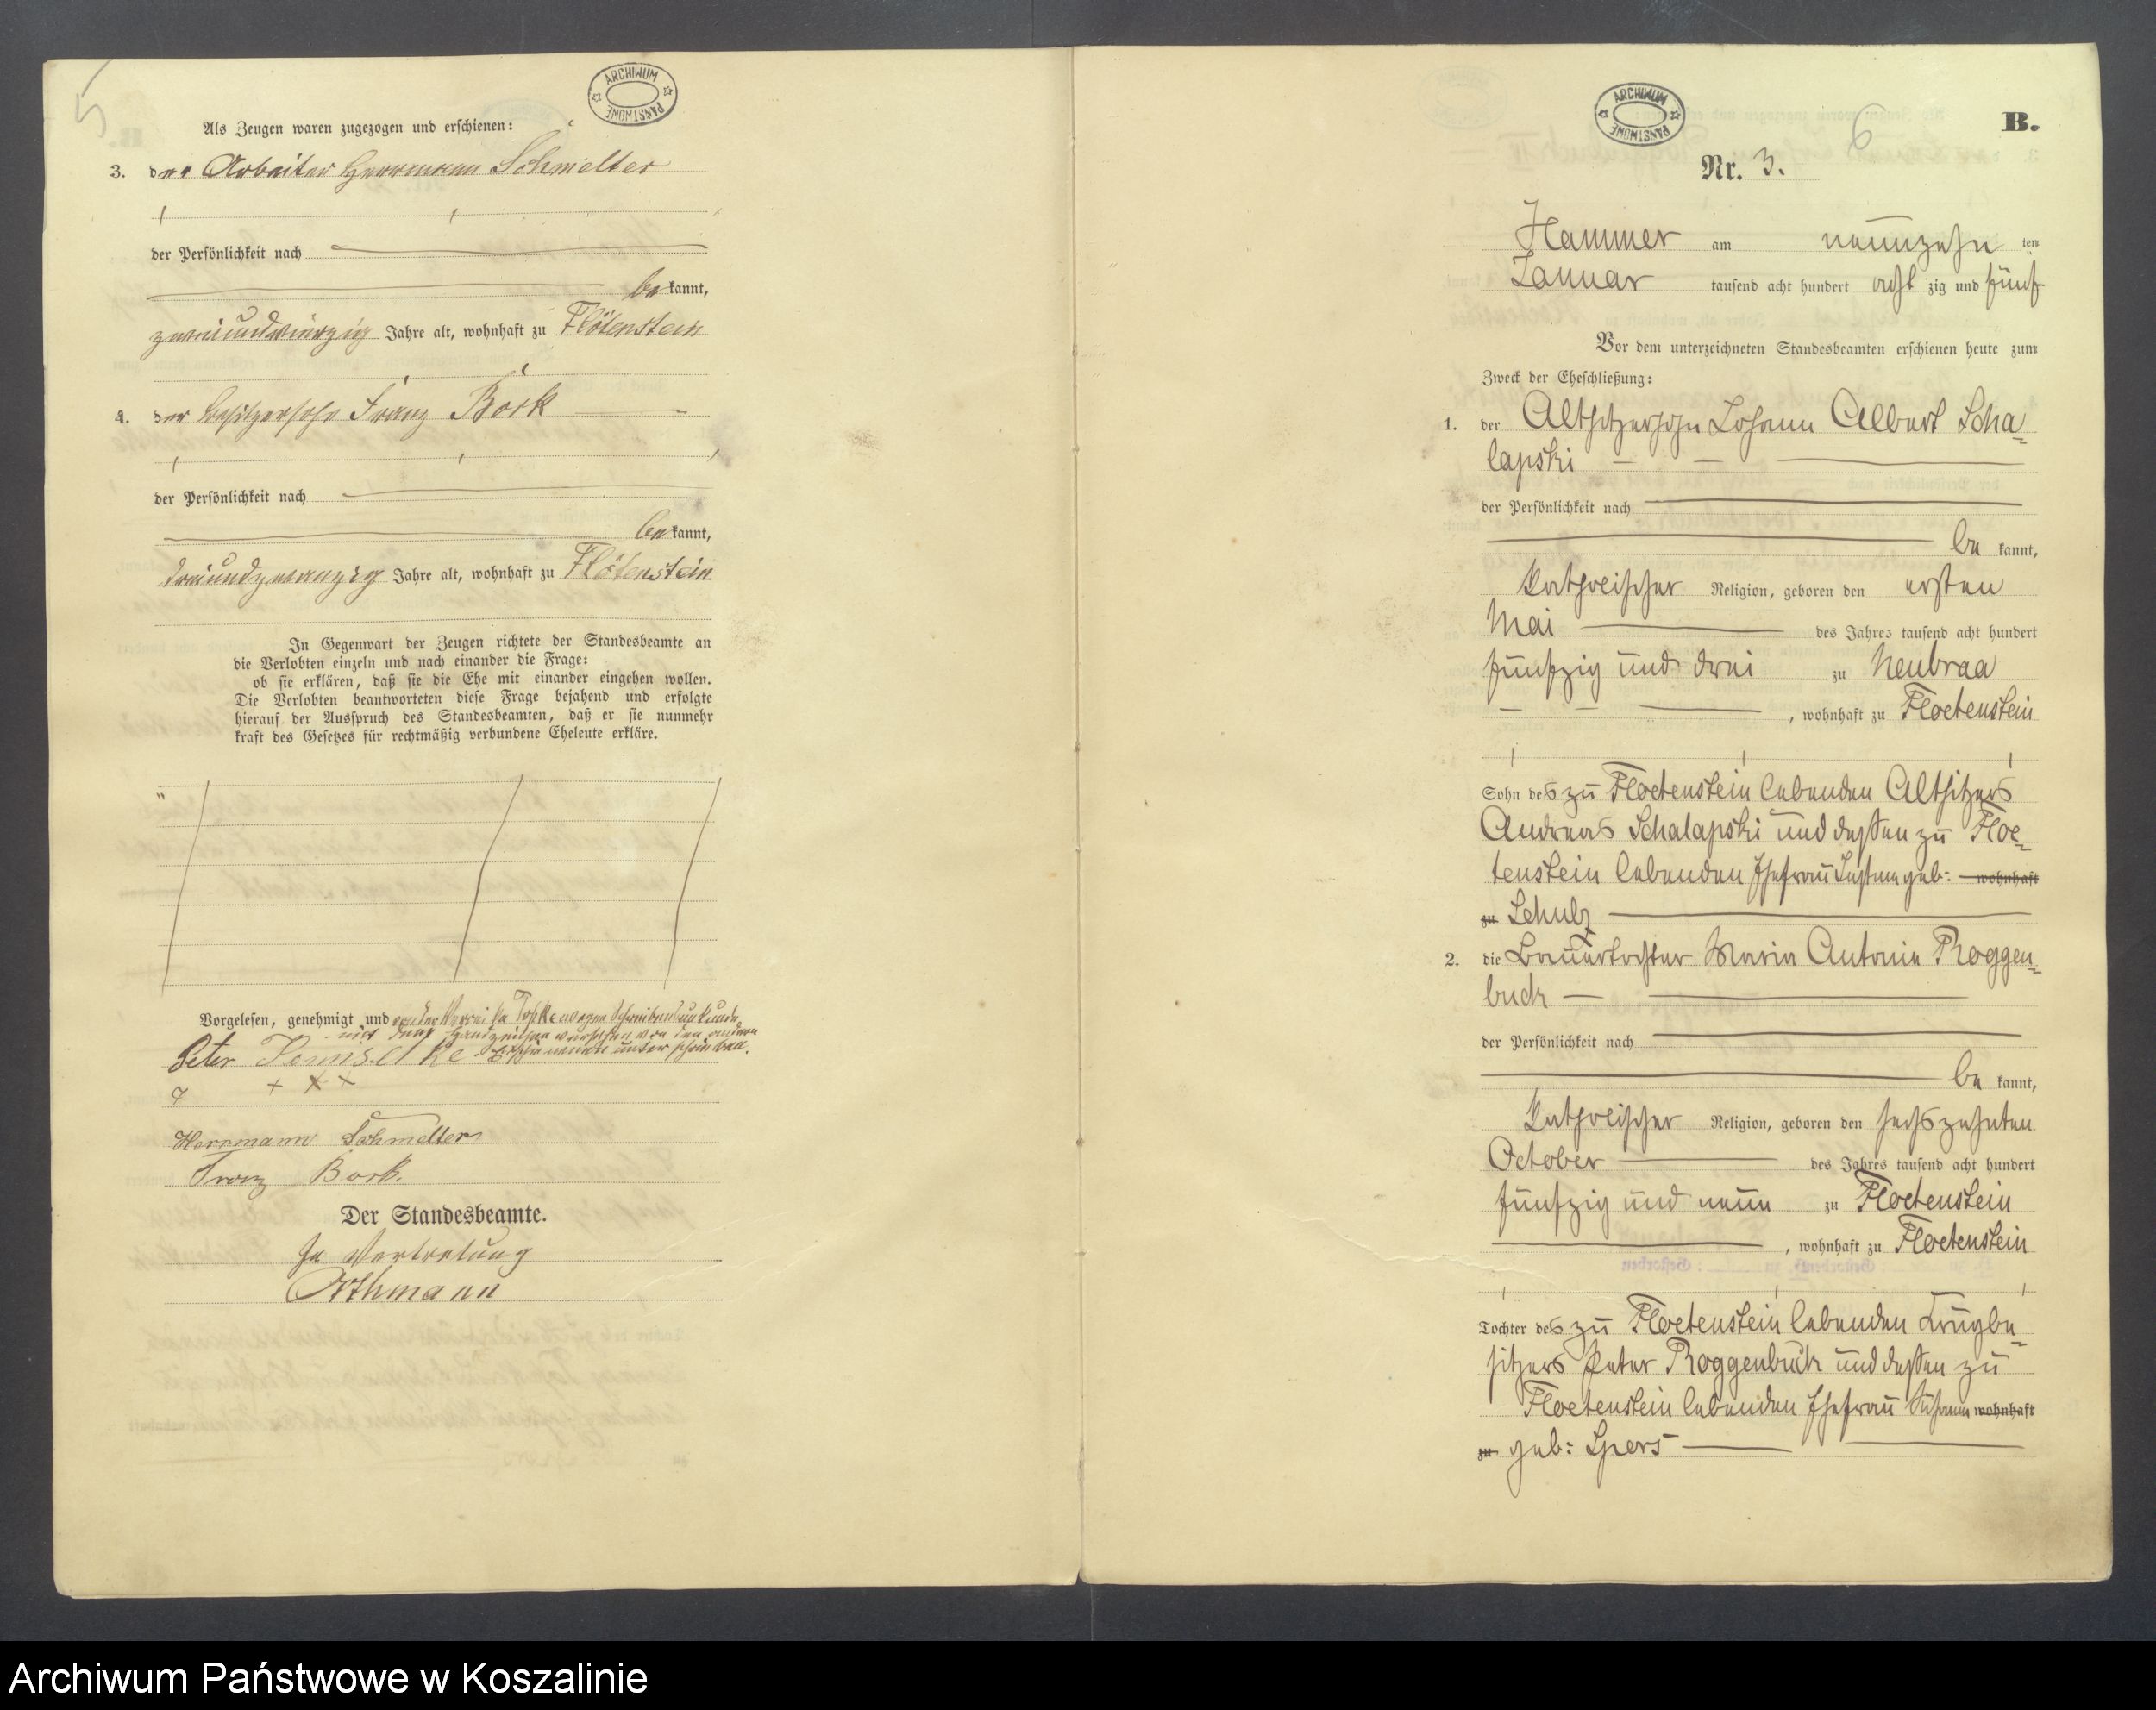 5
ARCHIWUM PAŃSTWOWE
Als Zeugen waren zugezogen und erschienen:
3. der Arbeiter Herrmann Schmelter
der Persönlichkeit nach
bekannt,
zweiundvierzig Jahre alt, wohnhaft zu Flötenstein
4. der Besitzersohn Franz Bork
der Persönlichkeit nach
bekannt,
dreiundzwanzig Jahre alt, wohnhaft zu Flötenstein
In Gegenwart der Zeugen richtete der Standesbeamte an
die Verlobten einzeln und nach einander die Frage:
ob sie erklären, daß sie die Ehe mit einander eingehen wollen.
Die Verlobten beantworteten diese Frage bejahend und erfolgte
hierauf der Ausspruch des Standesbeamten, daß er sie nunmehr
kraft des Gesetzes für rechtmäßig verbundene Eheleute erkläre.
Vorgelesen, genehmigt und von der wegen Schreibensunkunde
mit drei Handzeichen versehen von den andern
Peter Erschienenen unterschrieben.
+ + +
Herrmann Schmelter
Franz Bork.
Der Standesbeamte.
In Vertretung
Othmann
ARCHIWUM PAŃSTWOWE
6
B.
Nr. 3.
Hammer am neunzehn ten
Januar tausend acht hundert acht zig und fünf
Vor dem unterzeichneten Standesbeamten erschienen heute zum
Zweck der Eheschließung:
1. der Altsitzersohn Johann Albert Scha-
lapski
der Persönlichkeit nach
be kannt,
katholischer Religion, geboren den ersten
Mai des Jahres tausend acht hundert
fünfzig und drei zu Neubraa
, wohnhaft zu Floetenstein
Sohn des zu Floetenstein lebenden Altsitzers
Andreas Schalapski und dessen zu Floe-
tenstein lebenden Ehefrau Justine geb: wohnhaft
zu Schulz
2. die Bauertochter Maria Antonie Roggen-
buck
der Persönlichkeit nach
be kannt,
katholischer Religion, geboren den sechszehnten
October des Jahres tausend acht hundert
fünfzig und neun zu Floetenstein
, wohnhaft zu Floetenstein
Tochter des zu Floetenstein lebenden Krugbe-
sitzers Peter Roggenbuck und dessen zu
Floetenstein lebenden Ehefrau wohnhaft
zu geb: Spors
Archiwum Państwowe w Koszalinie